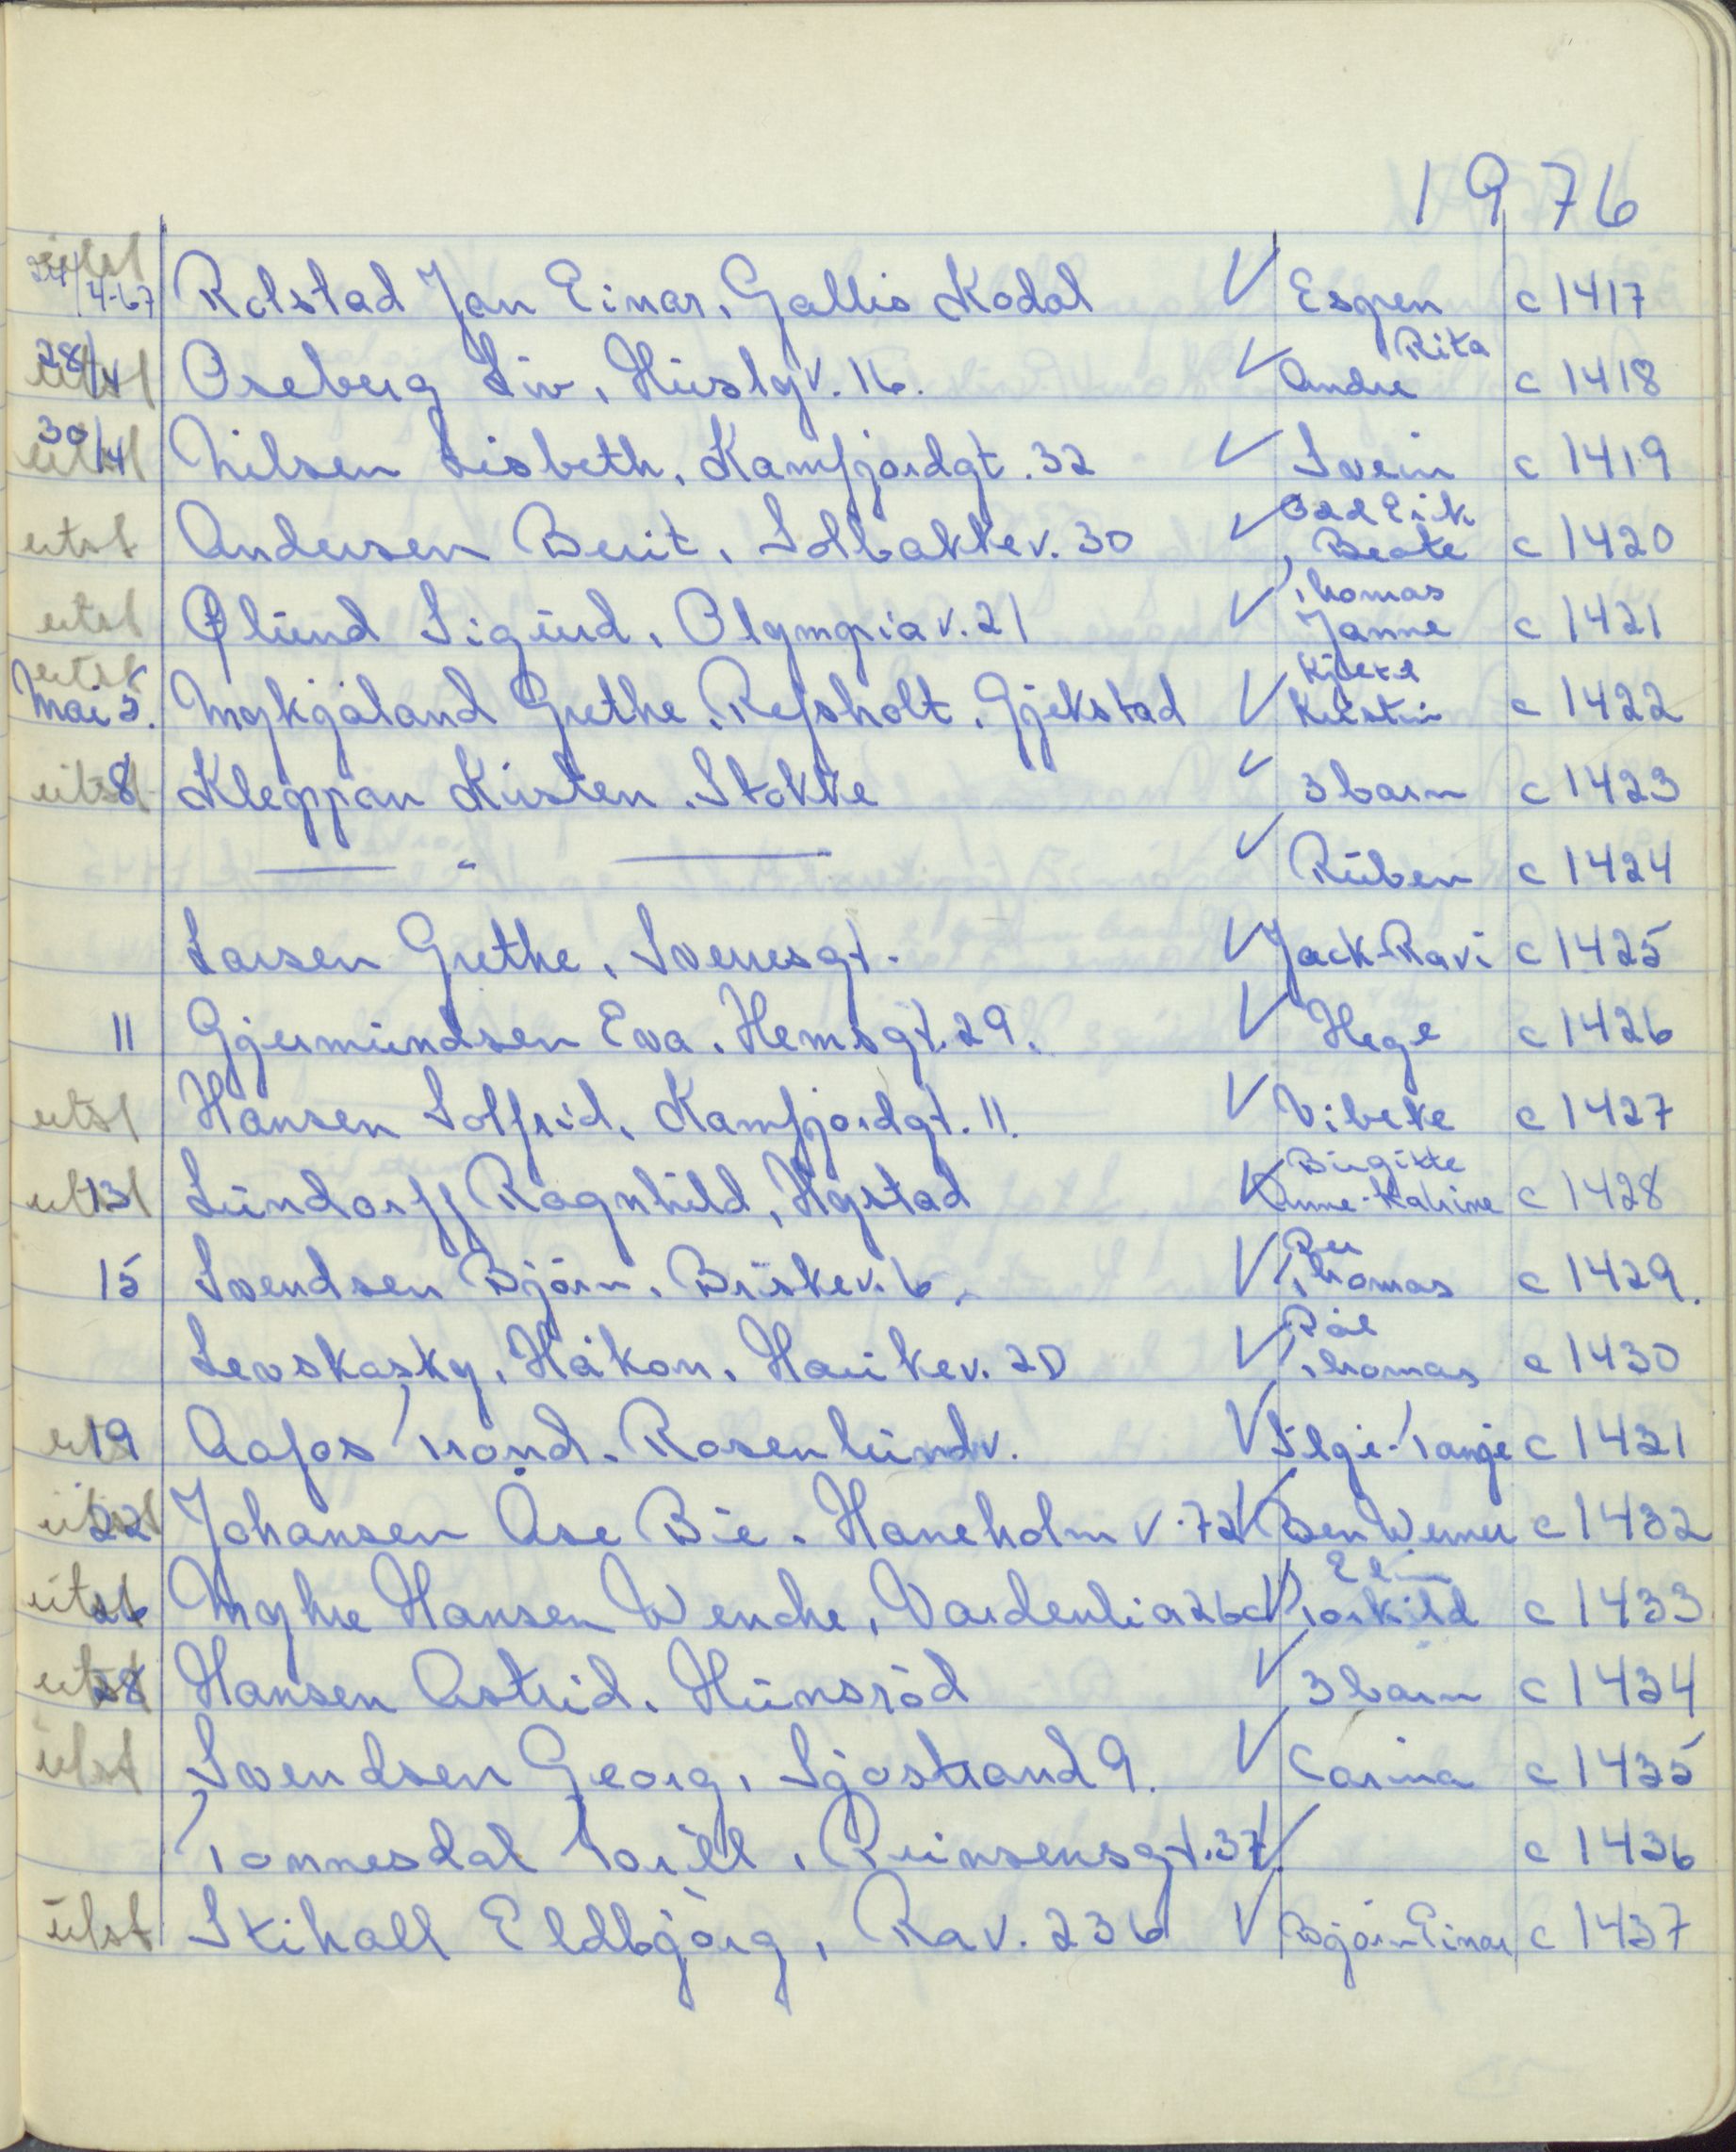 1976
utst 24/4-67 Rolstad Jan Einar, Gallis Kodal V Espen c 1417
utst 28/4 Oseberg Liv, Huslyv. 16. V Rita Andre c 1418
utst 30/4 Nilsen Lisbeth, Kamfjordgt. 32 V Svein c 1419
utst Andersen Berit, Solbakkev. 30 V Odd Erik Beate c 1420
utst Ølund Sigurd, Olympiav. 21 V Thomas Janne c 1421
utst Mai 5. Mykjåland Grethe, Refsholt, Gjekstad V Kjetil Kristin c 1422
utst 8 Kleppan Kirsten, Stokke V 3 barn c 1423
— " — V Ruben c 1424
Larsen Grethe, Sverresgt. V Jack-Ravi c 1425
11 Gjermundsen Eva, Hemsgt. 29. V Hege c 1426
utst Hansen Solfrid, Kamfjordgt. 11. V Vibeke c 1427
utst 13 Lundorff Ragnhild, Hystad V Birgitte Anne-Katrine c 1428
15 Svendsen Bjørn, Briskev. 6. V Per Thomas c 1429.
Levskasky, Håkon, Haukev. 20 V Pål Thomas c 1430
19 Aafos Trond, Rosenlundv. V Silje-Tanje c 1431
utst 22 Johansen Åse Bie, Haneholmv. 72 V Ben Werner c 1432
utst 26 Myhre Hansen Wenche, Vardenlia 26c V Elin Torkild c 1433
utst 28 Hansen Astrid, Hunsrød V 3 barn c 1434
utst Svendsen Georg, Sjøstrand 9. V Carina c 1435
Tonnesdal Torill, Prinsensgt. 37. V c 1436
utst Stihall Eldbjørg, Rav. 236 V Bjørn Einar c 1437